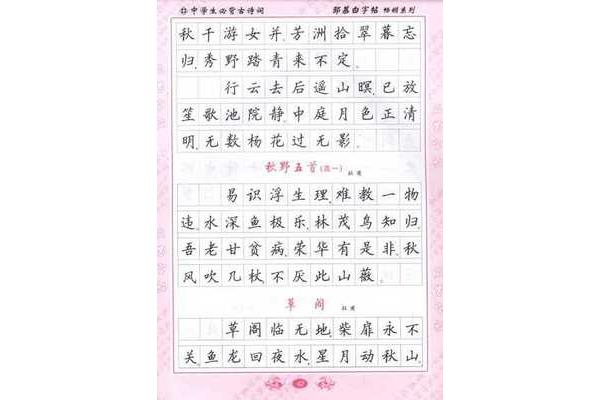 中学生必背古诗词 邹慕白字帖 畅销系列
秋千游女并。芳洲拾翠暮忘
归。秀野踏青来不定。
行云去后遥山暝。已放
笙歌池院静。中庭月色正清
明。无数杨花过无影。
秋野五首(选一) 杜甫
易识浮生理,难教一物
违。水深鱼极乐,林茂鸟知归。
吾老甘贫病,荣华有是非。秋
风吹几杖,不厌此山薇。
草阁 杜甫
草阁临无地,柴扉永不
关。鱼龙回夜水,星月动秋山。